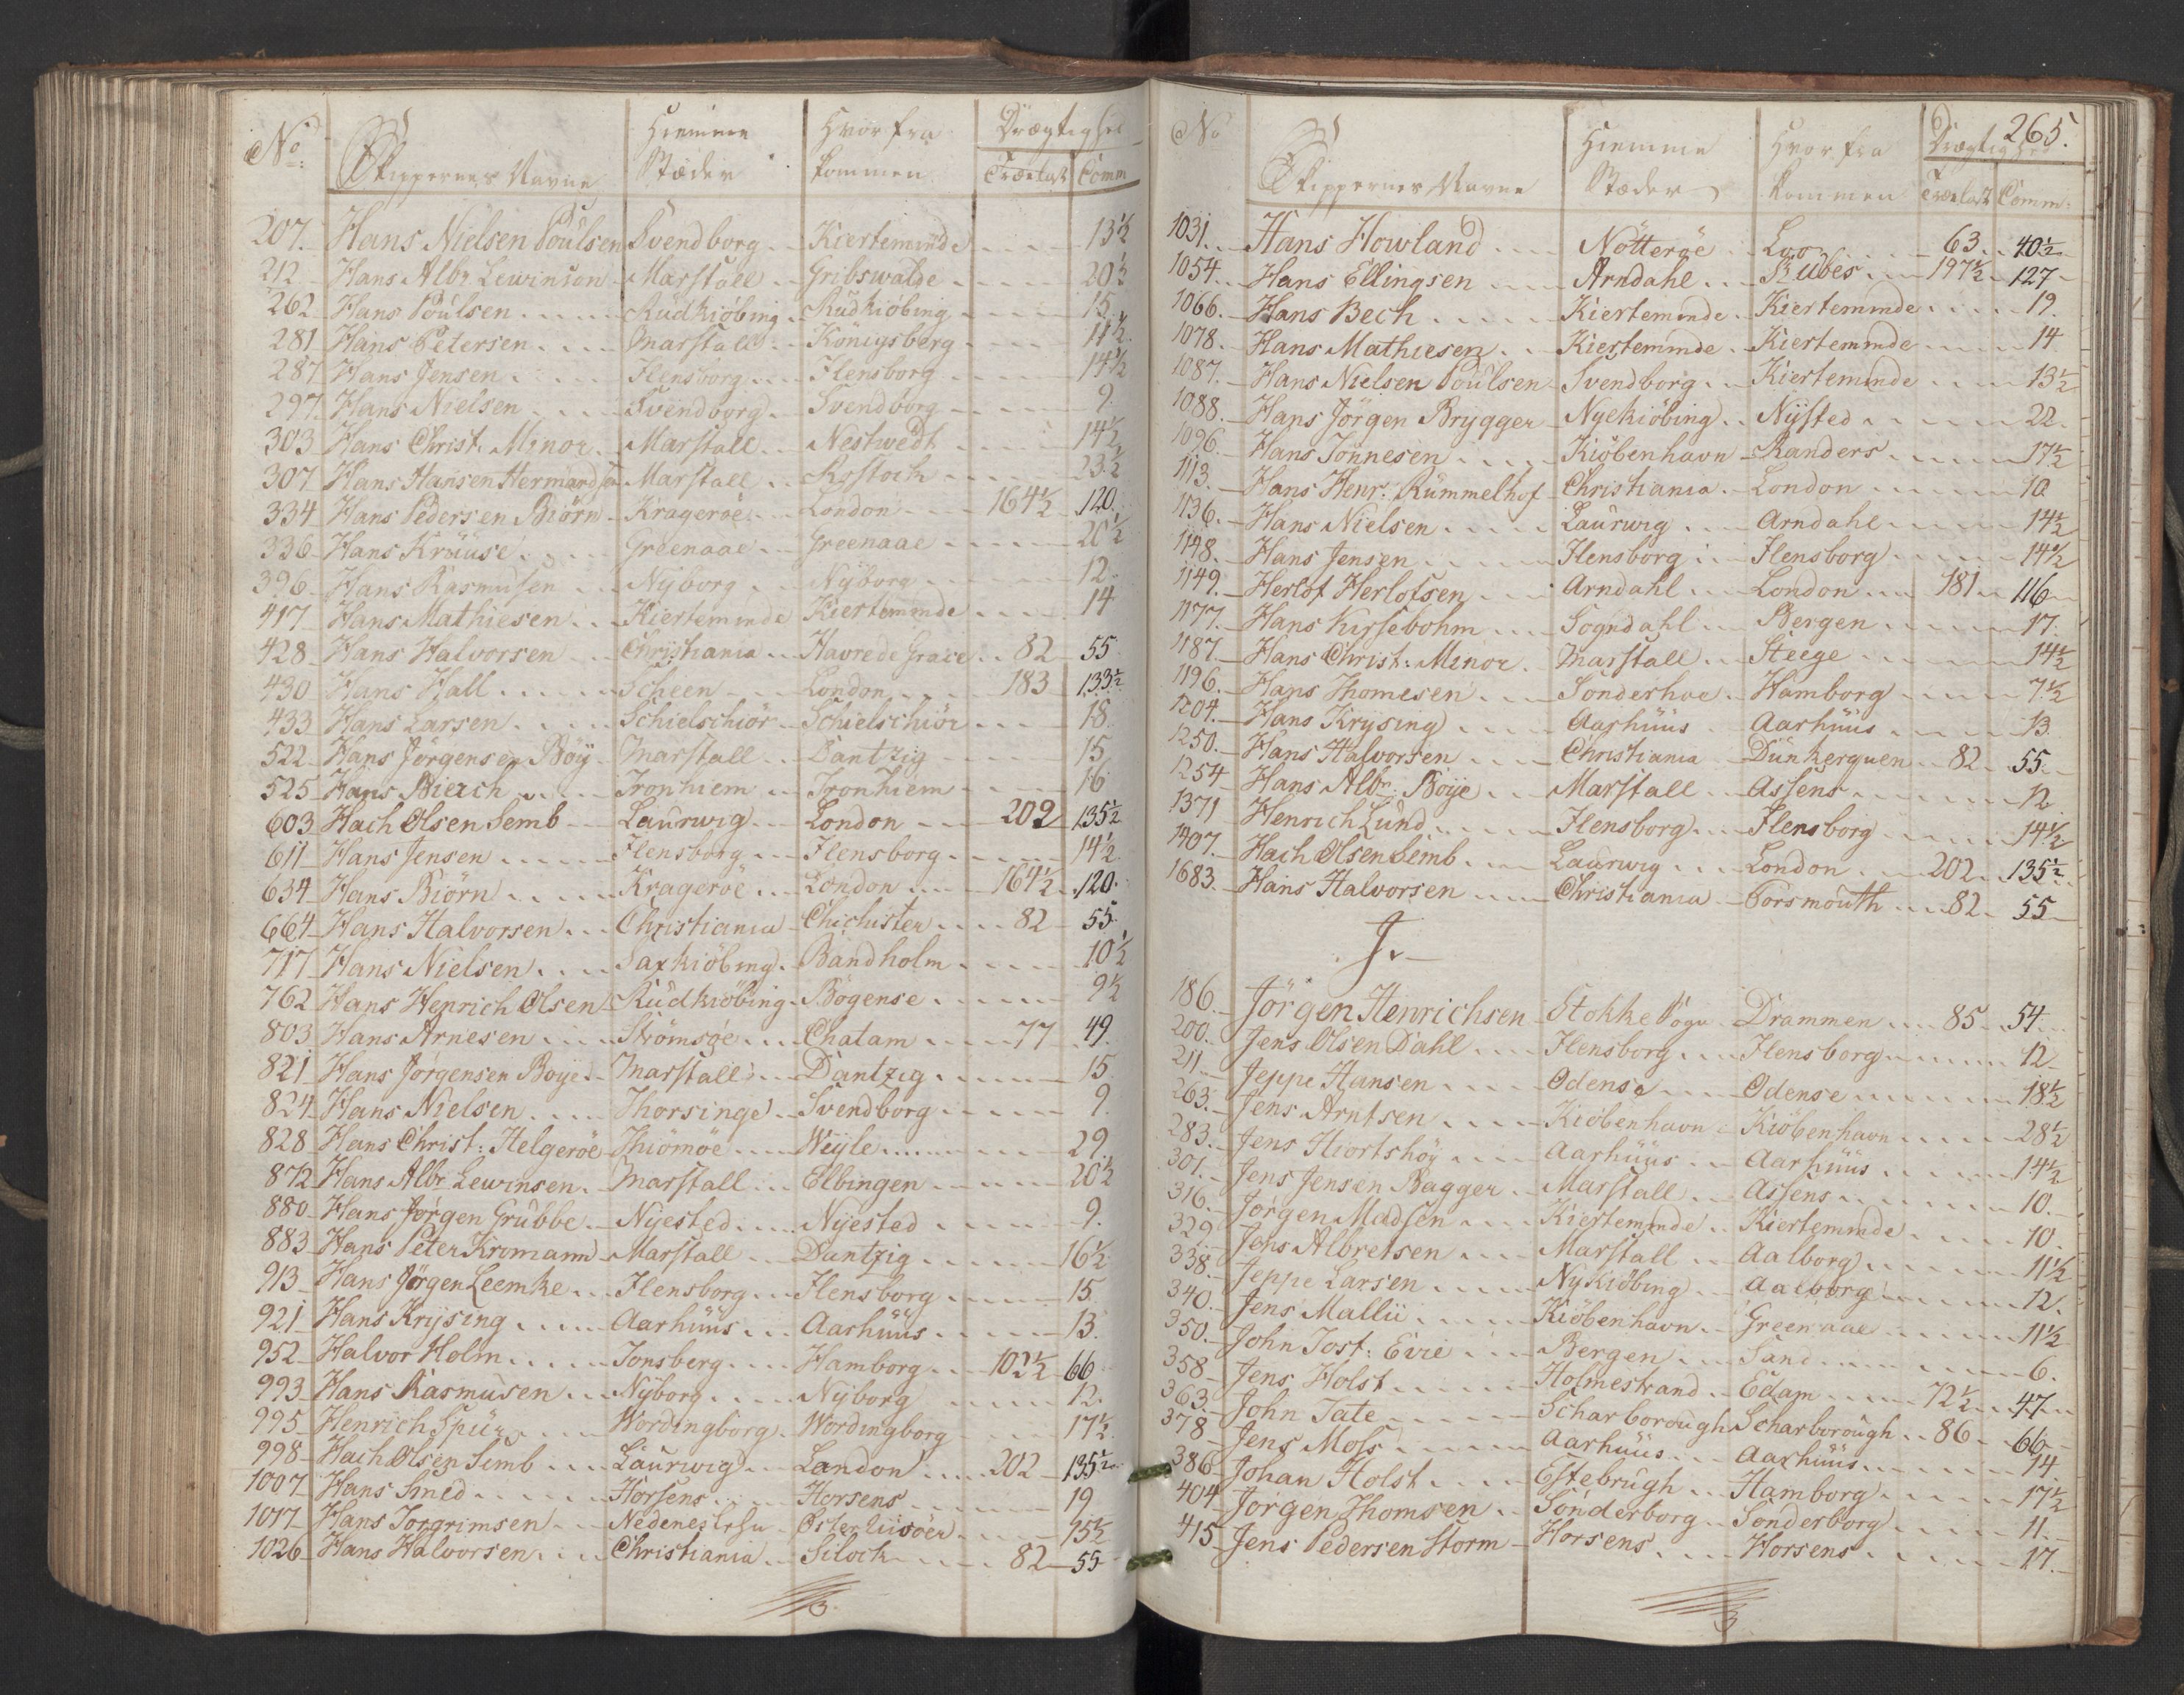 No. Skippernes Navne Hiemme Stæder Hvor fra kommen Drægtighed Trælast Comm
207. Hans Nielsen Poulsen Svendborg Kierteminde 13½
212 Hans Albr Lewinson Marstall Gribswalde 20½
262 Hans Poulsen Rudkiöbing Rudkiöbing 15
281 Hans Petersen Marstall Königsberg 11½
287 Hans Jensen Flensborg Flensborg 14½
297 Hans Nielsen Svendborg Svendborg 9.
303 Hans Christ. Minor Marstall Nestwedt 14½
307 Hans Hansen Marstall Rostoch 23½
334 Hans Pedersen Biörn Krageröe London 164½ 120.
336 Hans Krause Greenaae Greenaae 20½
396 Hans Rasmusen Nyborg Nyborg 12.
417 Hans Mathiesen Kierteminde Kierteminde 14
428 Hans Halvorsen Christiania Havre de Grace 82 55
430 Hans Hall Scheen London 183 133½
433 Hans Larsen Schielschiör Schielschiör 18.
522 Hans Jörgensen Böiy Marstall Dantzig 15
525 Hans Bierch Tronhiem Tronhiem 16
603 Hach Olsen Semb Laurwig London 202 135½
611 Hans Jensen Flensborg Flensborg 14½
634 Hans Biörn Krageröe London 164½ 120.
664 Hans Halvorsen Christiania Chichister 82 55.
717 Hans Nielsen Saxkiöbing Bandholm 10½
762 Hans Henrich Olsen Rudkiöbing Bogense 9½
803 Hans Arnesen Strömsöe Chatam 77 49.
821 Hans Jörgensen Boije Marstall Dantzig 15
824 Hans Nielsen Thorsinge Svendborg 9.
828 Hans Christ: Helgeröe Thiömöe Weyle 29.
872 Hans Albr. Lewinsen Marstall Elbingen 20½
880 Hans Jörgen Grubbe Nyested Nyested 9.
883 Hans Peter Kromann Marstall Dantzig 16½
913 Hans Jörgen Leemke Flensborg Flensborg 15
921 Hans Krysing Aarhuus Aarhuus 13.
952 Halvor Holm Tonsberg Hamborg 102½ 66
993 Hans Rasmusen Nyborg Nyborg 12.
995 Henrich Spur Wordingborg Wordingborg 17½
998 Hach Olsen Semb Laurwig London 202 135½
1007 Hans Smed Horsens Horsens 19
1017 Hans Torgrimsen Öster Riisöer 75½
1026 Hans Halvorsen Christiania Siloch 82 55
265.
No Skippernes Navne Hiemme Stæder Hvor fra kommen Drægtighed Trælast Comm:
1031. Hans Howland Nötteröe Loo 63 40½
1054. Hans Ellingsen Arndahl St Ubes 197½ 127
1066. Hans Bech Kierteminde Kierteminde 19.
1078. Hans Mathiesen Kierteminde Kierteminde 14
1087. Hans Nielsen Poulsen Svendborg Kierteminde 13½
1088. Hans Jörgen Brygger Nyekiöbing Nysted 22.
1096. Hans Tonnesen Kiöbenhavn Randers 17½
1113. Hans Henr. Rummelhof Christiania London 10
1136. Hans Nielsen Laurwig Arndahl 14½
1148. Hans Jensen Flensborg Flensborg 14½
1149. Herlof Herlofsen Arndahl London 181 116
1177. Hans Kirsebohm Sogndahl Bergen 17.
1187. Hans Christ: Minor Marstall Steege 14½
1196. Hans Thomesen Sonderhoe Hamborg 7½
1204. Hans Krysing Aarhuus Aarhuus 13
1250. Hans Halvorsen Christiania Dunkerquen 82 55
1254 Hans Albr. Böije Marstall Assens 12
1371 Henrich Lund Flensborg Flensborg 14½
1407. Hach Olsen Semb Laurwig London 202 135½
1683. Hans Halvorsen Christiania Porsmouth 82 55
J.
186. Jörgen Henrichsen Stokke Sogn Drammen 85 54
200. Jens Olsen Dahl Flensborg Flensborg 12
211. Jeppe Hansen Odense Odense 18½
263. Jens Arntsen Kiöbenhavn Kiöbenhavn 28½
283. Jens Hiortshöy Aarhuus Aarhuus 14½
301. Jens Jensen Bagger Marstall Assens 10.
316. Jörgen Madsen Kierteminde Kierteminde 10.
329. Jens Albretsen Marstall Aalborg 11½
338. Jeppe Larsen Nykiöbing Aalborg 12.
340. Jens Mallii Kiöbenhavn Greenaae 11½
350. John Tost: Evie Bergen Sand 6.
358 Jens Holst Holmestrand Edam 72½ 47
363. John Tate Scharborough Scharborough 86 66
378 Jens Moss Aarhuus Aarhuus 14.
386 Johan Holst Estebrugh Hamborg 17½
404 Jörgen Thomsen Sonderborg Sonderborg 11.
415 Jens Pedersen Storm Horsens Horsens 17.